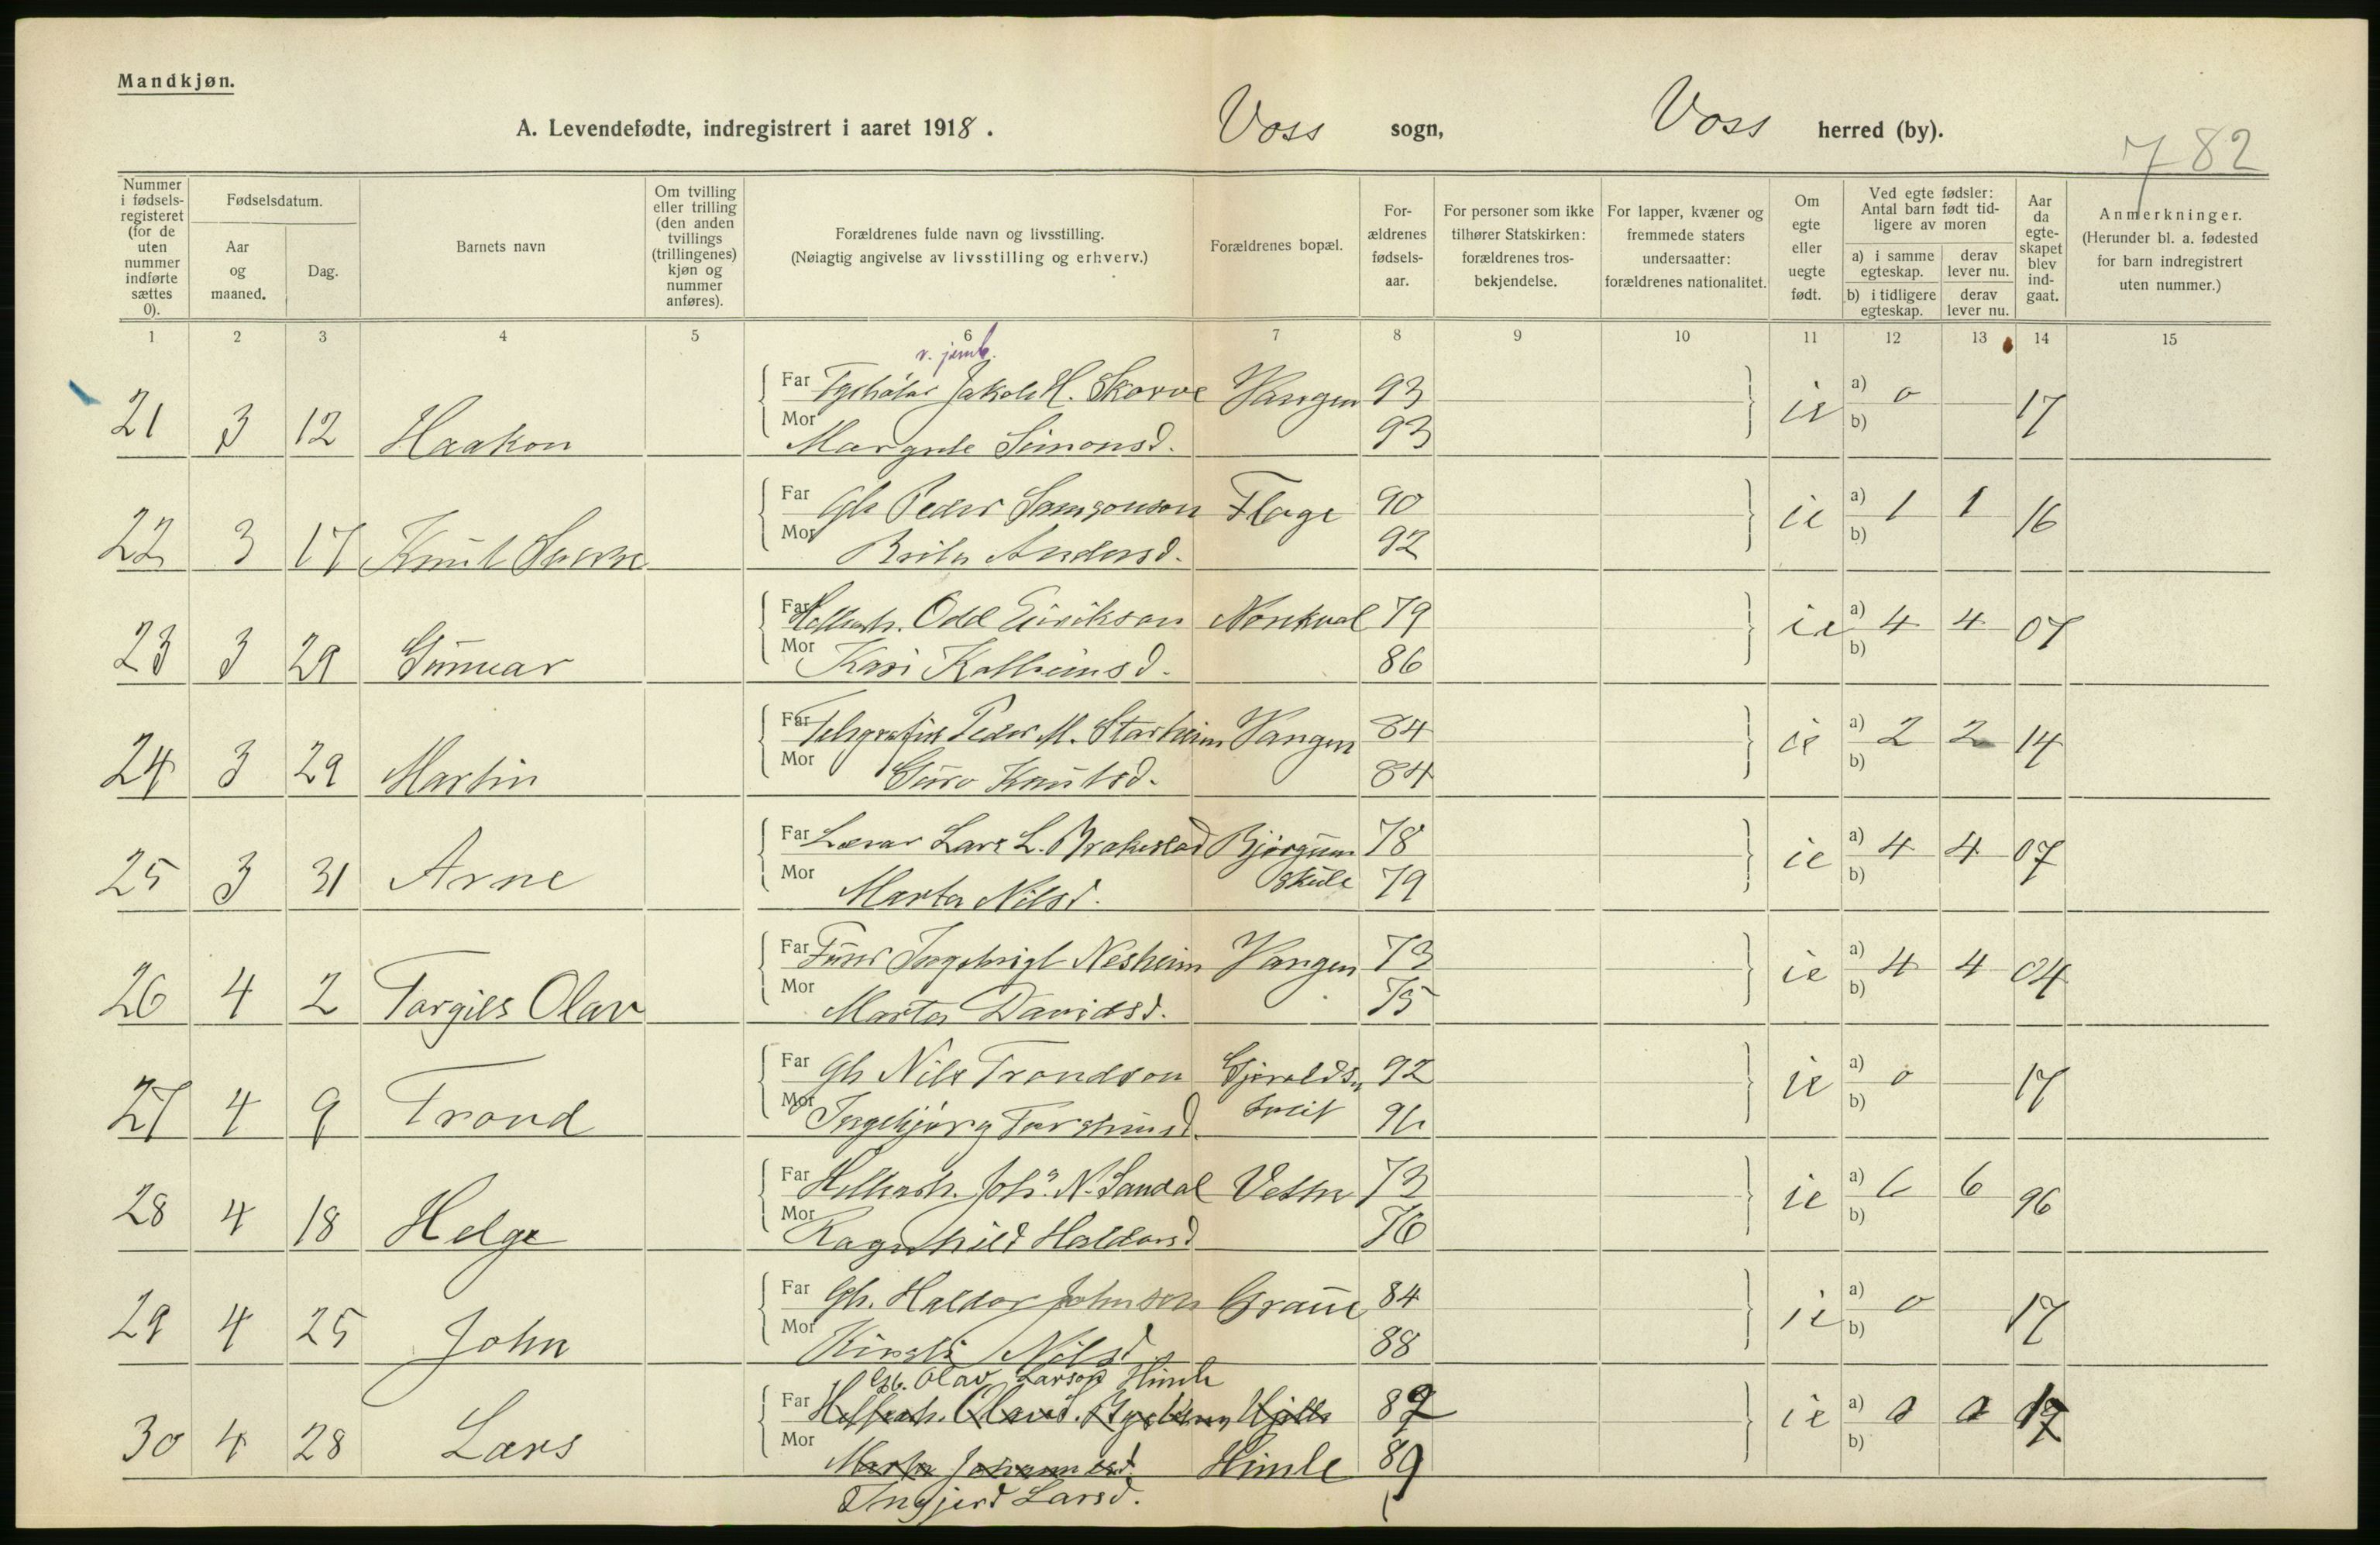 Mandkjøn.
A. Levendefødte, indregistrert i aaret 1918. Voss sogn, Voss herred (by).
782
Nummer i fødsels-registeret (for de uten nummer indførte sættes 0).
Fødselsdatum.
Aar og maaned.
Dag.
Barnets navn
Om tvilling eller trilling (den anden tvillings (trillingenes) kjøn og nummer anføres).
Forældrenes fulde navn og livsstilling.
(Nøiagtig angivelse av livsstilling og erhverv.)
Forældrenes bopæl.
For-ældrenes fødsels-aar.
For personer som ikke tilhører Statskirken: forældrenes tros-bekjendelse.
For lapper, kvæner og fremmede staters undersaatter: forældrenes nationalitet.
Om egte eller uegte født.
Ved egte fødsler: Antal barn født tid-ligere av moren
a) i samme egteskap. derav lever nu.
b) i tidligere egteskap. derav lever nu.
Aar da egte-skapet blev ind-gaat.
Anmerkninger.
(Herunder bl. a. fødested for barn indregistrert uten nummer.)
1 2 3 4 5 6 7 8 9 10 11 12 13 14 15
v. jernb.
Far Jakob H. Skorve Vangen 93
21 3 12 Haakon ie a) 0 b) 17
Mor Margrete Simonsd. 93
Far Gb Peder Samsonson Flage 90
22 3 17 Knut Sverre ie a) 1 1 b) 16
Mor Brita Andersd. 92
Far Odd Eirikson 79
23 3 29 Gunnar ie a) 4 4 b) 07
Mor Kari 86
Far Telegrafist Peder M. Starheim Vangen 84
24 3 29 Martin ie a) 2 2 b) 14
Mor Guro Knutsd. 84
Far Lærar Lars L. Brakestad Bjørgum 78
25 3 31 Arne ie a) 4 4 b) 07
Mor Marta Nilsd. skule 79
Far Ingebrigt Nesheim Vangen 73
26 4 2 Torgils Olav ie a) 4 4 b) 04
Mor Marta Davidsd. 75
Far Gb Nils Trondson Gjerald- 92
27 4 9 Trond ie a) 0 b) 17
Mor Ingebjørg tveit
Far N. Sandal 73
28 4 18 Helge ie a) 6 6 b) 96
Mor Ragnhild Haldorsd 76
Far Gb. Haldor Johnson Graue 84
29 4 25 John ie a) 0 b) 17
Mor Kirsti Nilsd 88
Gb. Olav Larson Himle
Far 82
30 4 28 Lars ie a) 0 0 b) 17
Mor Marta Johannesd. Himle 89
Ingjerd Larsd.